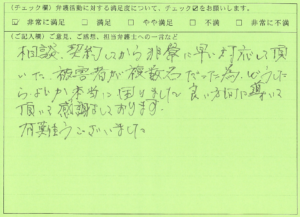 (チェック欄) 弁護活動に対する満足度について、チェック✓をお願いします。
☑ 非常に満足 □ 満足 □ やや満足 □ 不満 □ 非常に不満
(ご記入欄) ご意見、ご感想、担当弁護士への一言など
相談、契約してから非常に早い対応して頂
いた。被害者が複数名だった為、どうした
らよいか本当に困りました。良い方向に導いて
頂いて感謝しております。
有難うございました